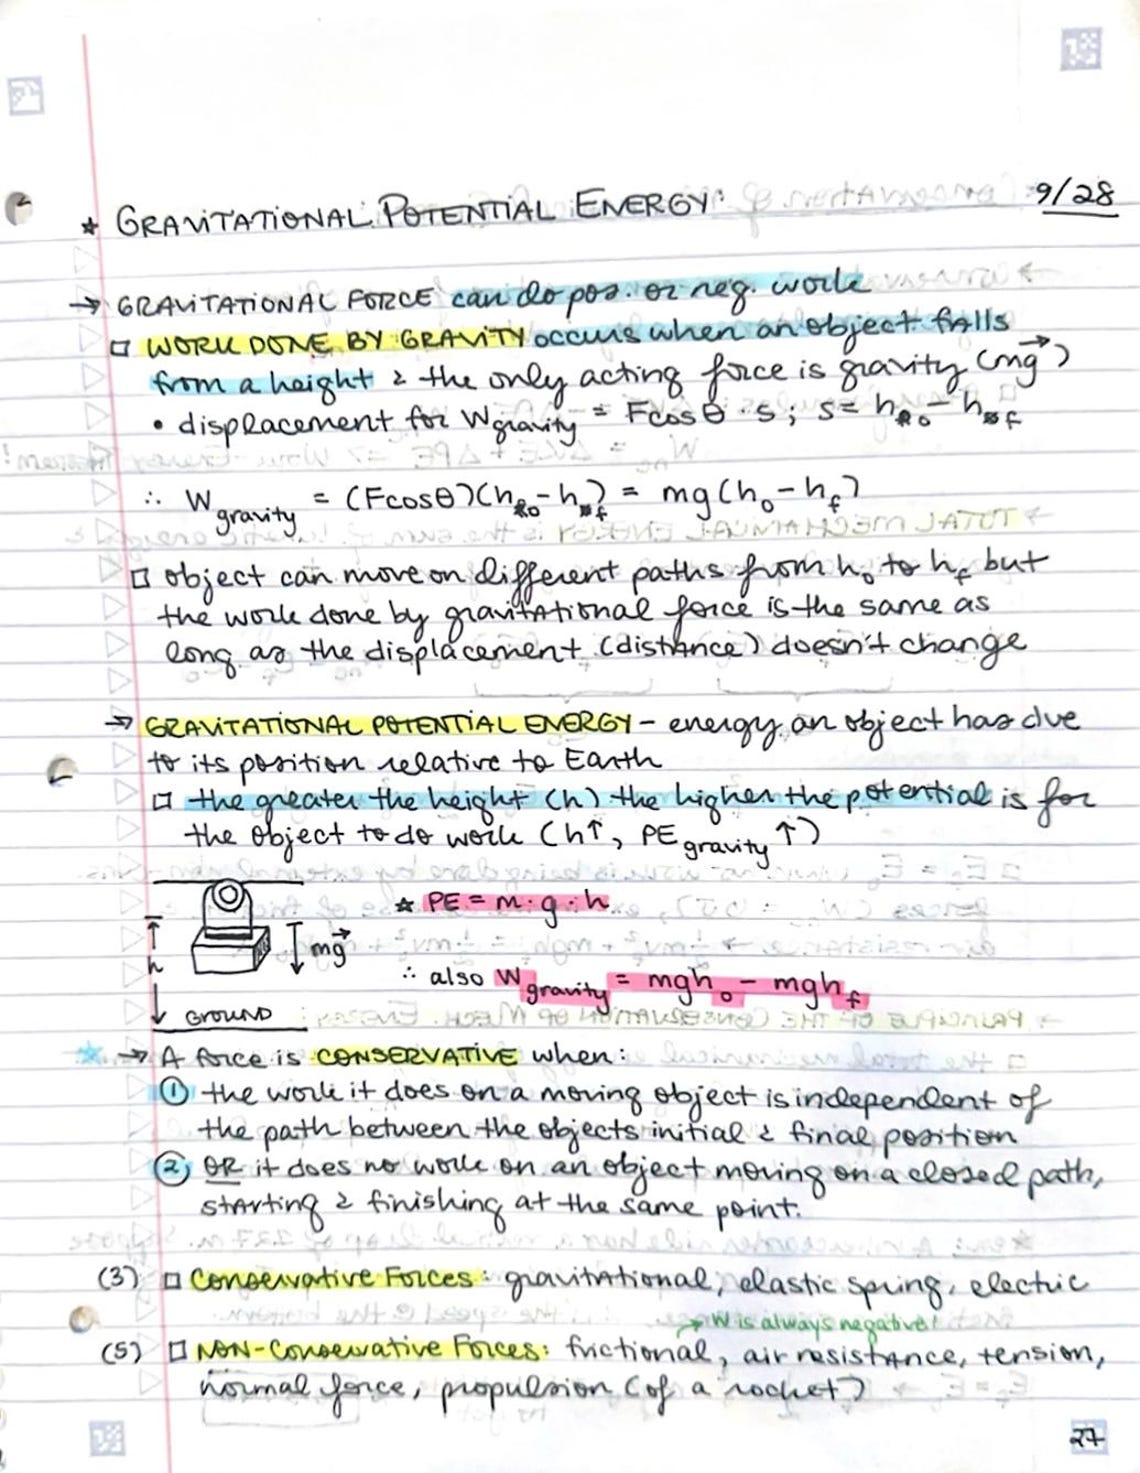 9/28
★ GRAVITATIONAL POTENTIAL ENERGY:
→ GRAVITATIONAL FORCE can do pos. or neg. work
□ WORK DONE BY GRAVITY occurs when an object falls
from a height & the only acting force is gravity (mg⃗)
• displacement for W gravity = Fcosθ · s; s = h₀ - h_f
∴ W gravity = (Fcosθ)(h₀ - h_f) = mg(h₀ - h_f)
□ object can move on different paths from h₀ to h_f but
the work done by gravitational force is the same as
long as the displacement (distance) doesn't change
→ GRAVITATIONAL POTENTIAL ENERGY - energy an object has due
to its position relative to Earth
□ the greater the height (h) the higher the potential is for
the object to do work (h↑, PE gravity ↑)
★ PE = m · g · h
h
mg⃗
∴ also W gravity = mgh₀ - mgh_f
GROUND
★ → A force is CONSERVATIVE when:
① the work it does on a moving object is independent of
the path between the objects initial & final position
② OR it does no work on an object moving on a closed path,
starting & finishing at the same point.
(3) □ Conservative Forces: gravitational, elastic spring, electric
→ W is always negative!
(5) □ NON-Conservative Forces: frictional, air resistance, tension,
normal force, propulsion (of a rocket)
27